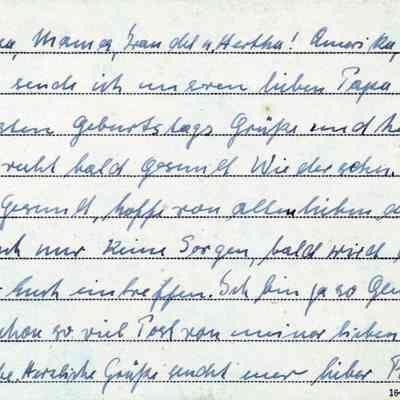 Mama, Traudel u. Hertha! Amerika,
sende ich unseren lieben Papa
sten Geburtstags Grüße und h
recht bald gesundt Wiedersehn.
Gesundt, hoffe von allen lieben d
ch nur keine Sorgen, bald wird
Euch eintreffen. Ich bin ja so Gl
schon so viel Post von meiner lieben
be. Herzliche Grüße sendt euer lieber P
16